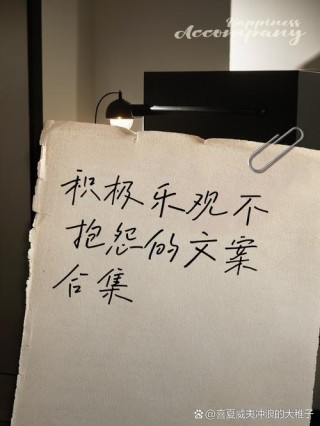 Happiness
Accompany
积极乐观不
抱怨的文案
合集
头条@喜夏威夷冲浪的大稚子